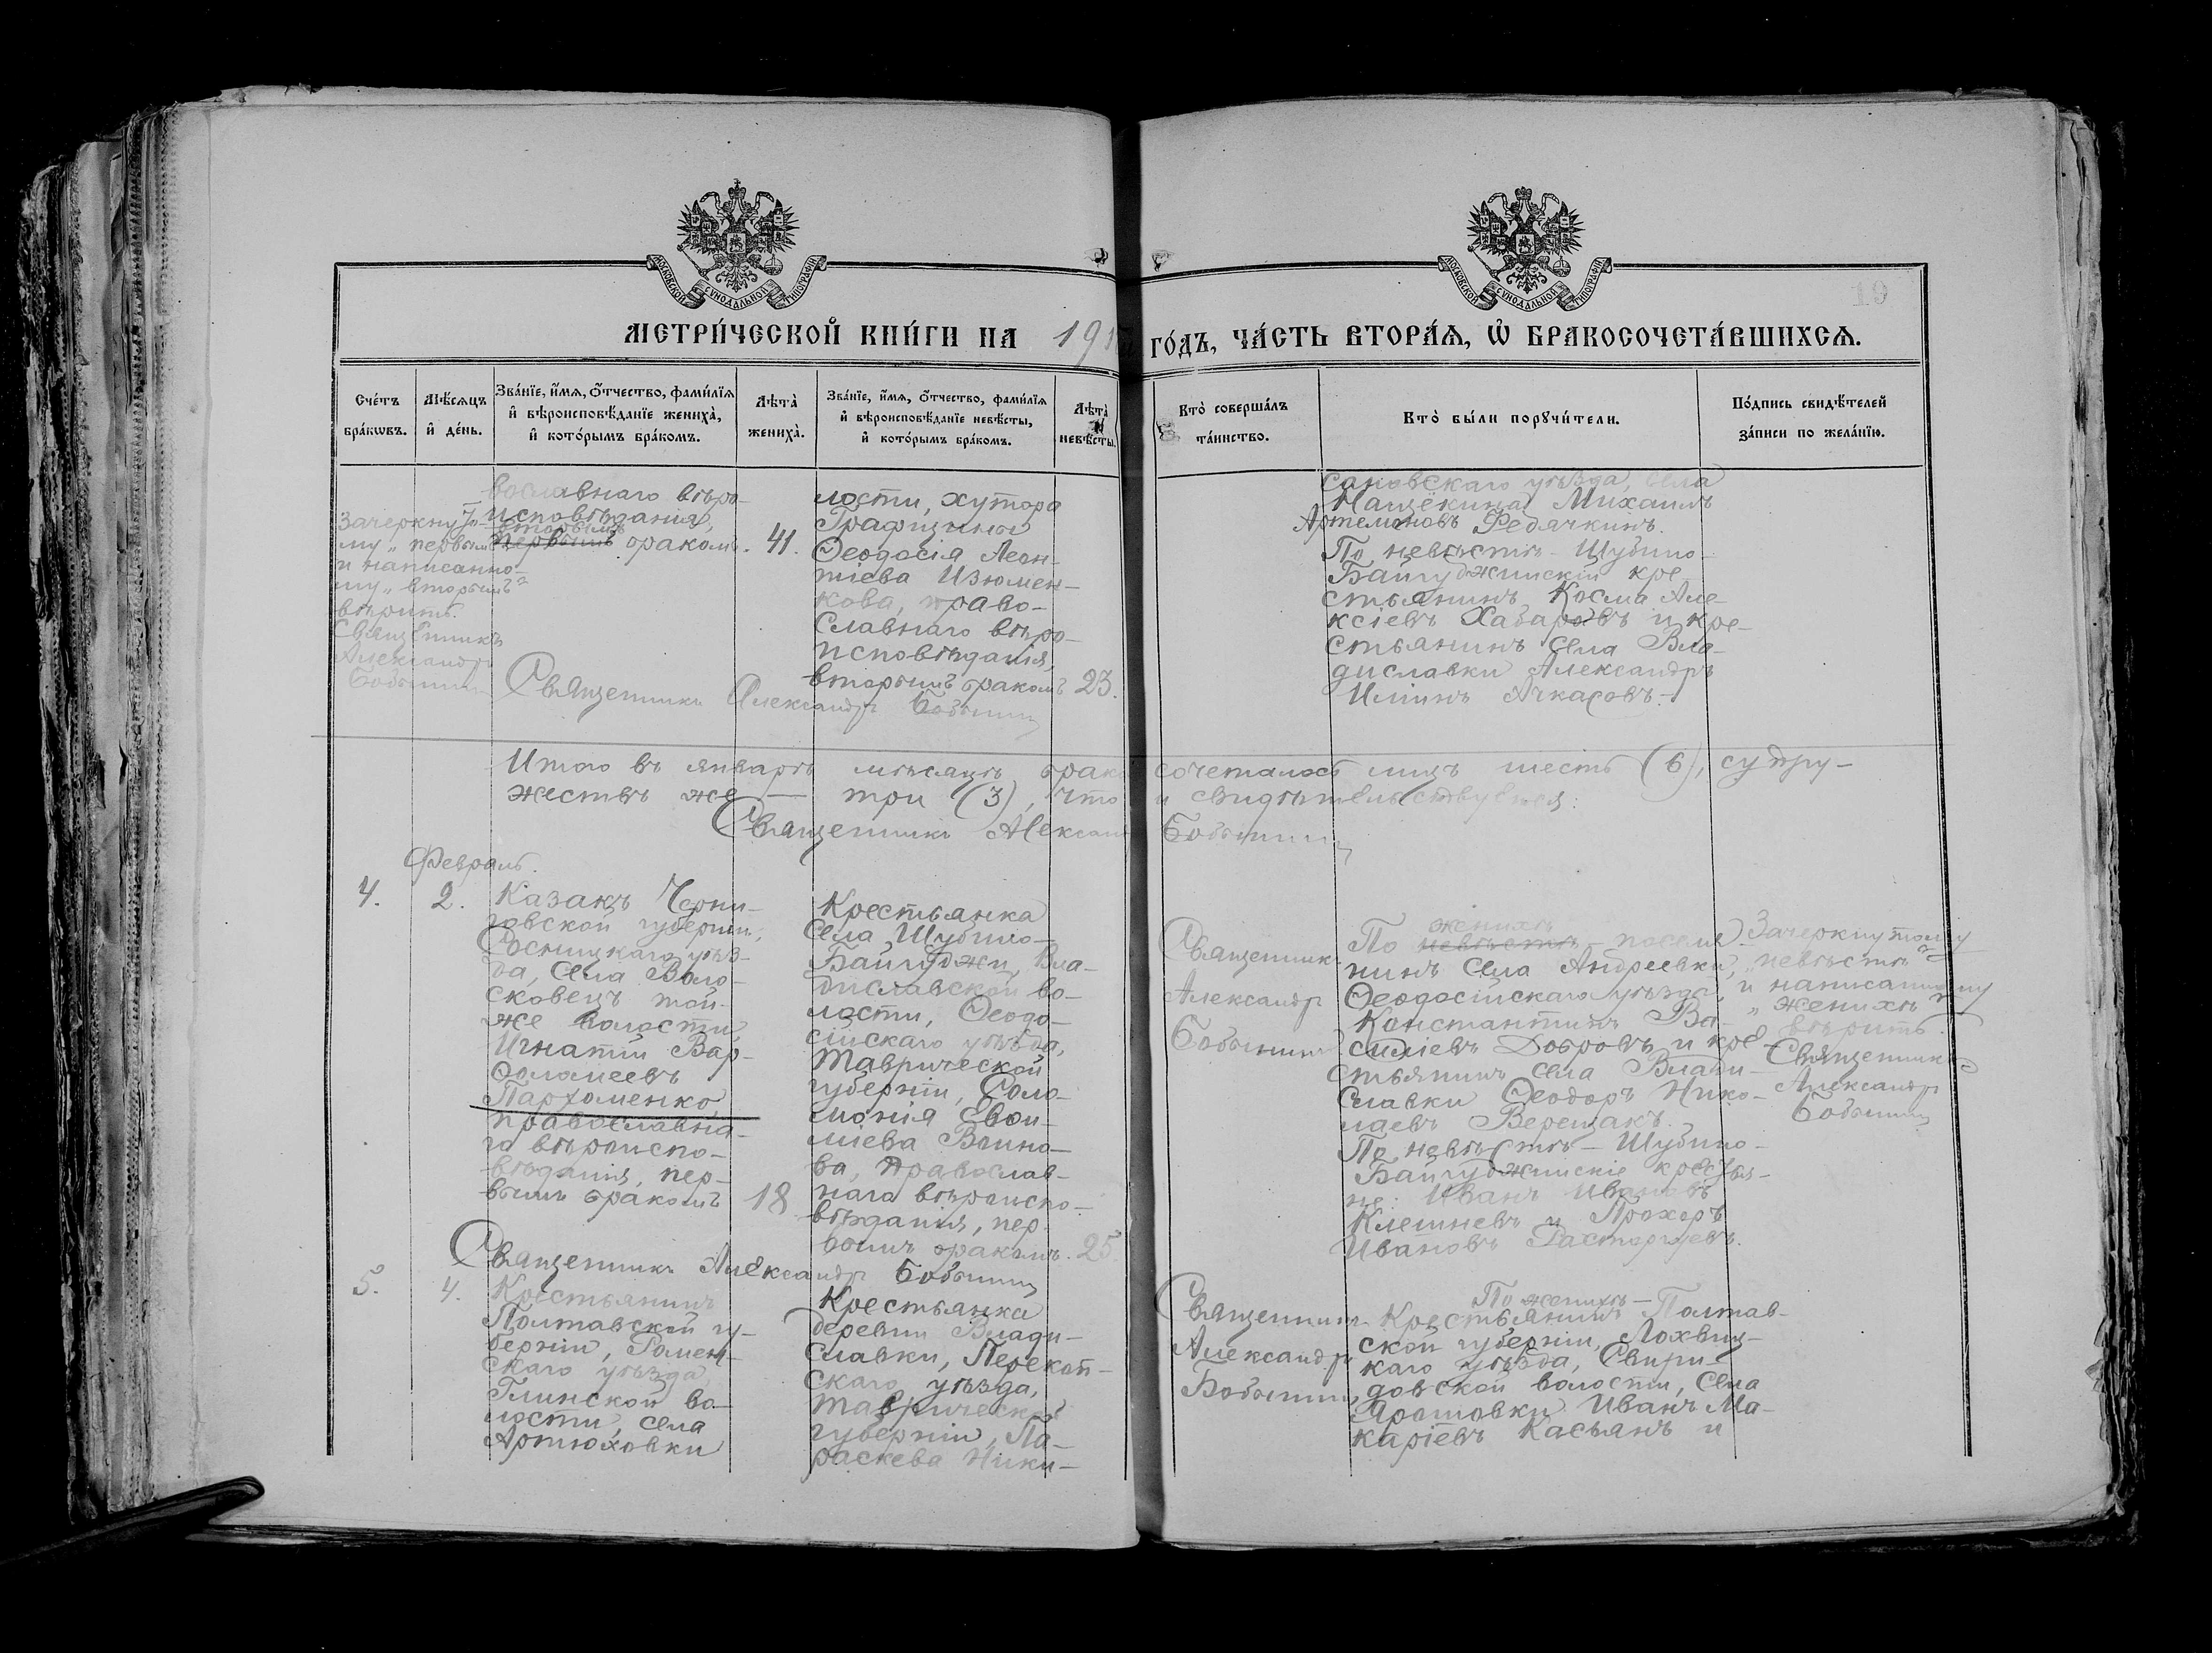 МОСКОВСКОЙ СУНОДАЛЬНОЙ ТИПОГРАФІИ
МОСКОВСКОЙ СУНОДАЛЬНОЙ ТИПОГРАФІИ
19
МЕТРИ́ЧЕСКОЙ КНИ́ГИ НА 191
ГО́ДЪ, ЧА́СТЬ ВТОРА́Я, Ѡ БРАКОСОЧЕТА́ВШИХСЯ.
Сче́тъ бра́кωвъ.
Мѣ́сяцъ и де́нь.
Зва́нїе, и́мя, о́тчество, фами́лїя и вѣроисповѣ́данїе жениха̀, и кото́рымъ бра́комъ.
Лѣта̀ жениха̀.
Зва́нїе, и́мя, о́тчество, фами́лїя и вѣроисповѣ́данїе невѣ́сты, и кото́рымъ бра́комъ.
Лѣта̀ невѣ́сты.
Кто̀ соверша́лъ та́инство.
Кто̀ бы́ли порꙋчи́тели.
По́дпись свидѣ́телей за́писи по жела́нїю.
Зачеркнуто-
му „первымъ
и написанно-
му „вторымъ"
вѣрить.
Священникъ
Александръ
Бобынин
вославнаго вѣро-
исповѣданія,
вторымъ
первымъ бракомъ.
41.
лости, хутора
Графщины
Ѳеодосія Леон-
тіева Изюмен-
кова, право-
славнаго вѣро-
исповѣданія,
вторымъ бракомъ
23.
Священникъ Александръ Бобынин
сановскаго уѣзда, села
Нащёкина Михаилъ
Артемоновъ Федячкинъ.
По невѣстѣ - Шубино-
Байгуджинскій кре-
стьянинъ Косма Але-
ксіевъ Хабаровъ и кре-
стьянинъ села Вла-
диславки Александръ
Илиинъ Ачкасовъ.
Итого въ январѣ мѣсяцѣ брако сочеталось лицъ шесть (6), супру-
жествъ же — три (3), что и свидѣтельствуется:
Священникъ Александръ Бобынин
Февраль.
4.
2.
Казакъ Черни-
говской губерніи,
Сосницкаго уѣз-
да, села Воло-
сковецъ той-
же волости,
Игнатій Вар-
ѳоломеевъ
Пархоменко,
православна-
го вѣроиспо-
вѣданія, пер-
вымъ бракомъ
18
Крестьянка
села Шубино-
Байгуджи, Вла-
диславской во-
лости, Ѳеодо-
сійскаго уѣзда,
Таврической
губерніи, Соло-
монія Евѳи-
міева Блино-
ва, православ-
наго вѣроиспо-
вѣданія, пер-
вымъ бракомъ.
25.
Священникъ Александръ Бобынин
Священник
Александр
Бобынин
женихѣ
По невѣстѣ - поселя-
нинъ села Андреевки,
Ѳеодосійскаго уѣзда,
Константинъ Ва-
силіевъ Добровъ и кре-
стьянинъ села Влади-
славки Ѳеодоръ Нико-
лаевъ Верещакъ.
По невѣстѣ - Шубино-
Байгуджинскіе крестья-
не: Иванъ Ивановъ
Клешневъ и Прохоръ
Ивановъ Расторгуевъ.
Зачеркнутому
„невѣстѣ"
и написанному
„женихѣ"
вѣрить.
Священник
Александр
Бобынин
5.
4.
Крестьянинъ
Полтавской гу-
берніи, Ромен-
скаго уѣзда,
Глинской во-
лости, села
Артюховки
Крестьянка
деревни Влади-
славки, Перекоп-
скаго уѣзда,
Таврической
губерніи, Па-
раскева Ники-
Священник
Александръ
Бобынин,
По женихѣ -
Крестьянинъ Полтав-
ской губерніи, Лохвиц-
каго уѣзда, Свири-
довской волости, села
Яротовки Иванъ Ма-
каріевъ Касьянъ и